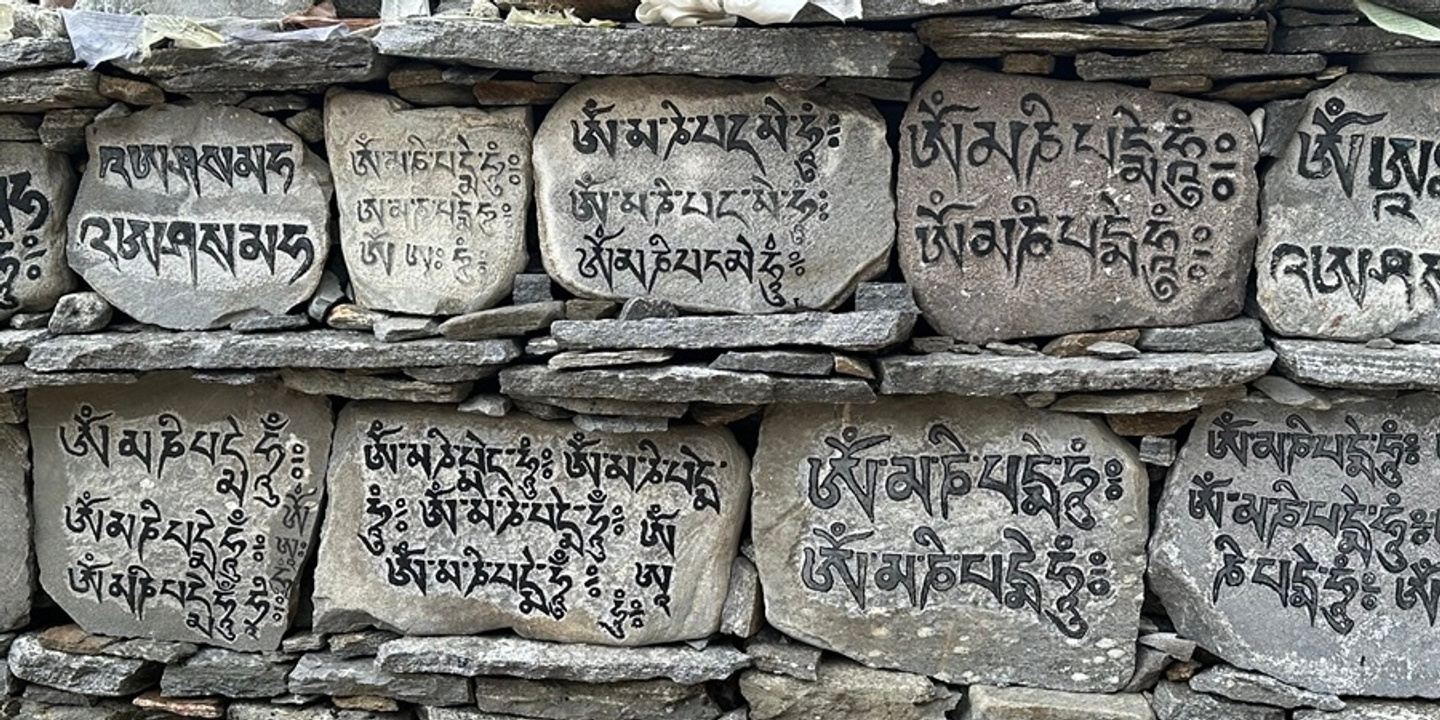 འ་ཨ་ཤ་ས་མ་ཧ
འ་ཨ་ཤ་ས་མ་ཧ
ཨོཾ་མ་ཎི་པདྨེ་ཧཱུྃ༔
ཨོཾ་མ་ཎི་པདྨེ་ཧཱུྃ༔
ཨོཾ་ཨཱཿ་ཧཱུྃ༔
ཨོཾ་མ་ཎི་པད་མེ་ཧཱུྃ༔
ཨོཾ་མ་ཎི་པད་མེ་ཧཱུྃ༔
ཨོཾ་མ་ཎི་པད་མེ་ཧཱུྃ༔
ཨོཾ་མ་ཎི་པདྨེ་ཧཱུྃ༔
ཨོཾ་མ་ཎི་པདྨེ་ཧཱུྃ༔
ཨོཾ་ཨཱཿ
འ་ཨ་ཤ་ས
ཨོཾ་མ་ཎི་པདྨེ་ཧཱུྃ༔
ཨོཾ་མ་ཎི་པདྨེ་ཧཱུྃ༔
ཨོཾ་མ་ཎི་པདྨེ་ཧཱུྃ༔
ཨོཾ་ཨཱཿ་ཧཱུྃ༔
ཨོཾ་མ་ཎི་པདྨེ་ཧཱུྃ༔ ཨོཾ་མ་ཎི་པདྨེ་
ཧཱུྃ༔ ཨོཾ་མ་ཎི་པདྨེ་ཧཱུྃ༔
ཨོཾ་མ་ཎི་པདྨེ་ཧཱུྃ༔
ཨོཾ་ཨཱཿ་ཧཱུྃ༔
ཨོཾ་མ་ཎི་པདྨེ་ཧཱུྃ༔
ཨོཾ་མ་ཎི་པདྨེ་ཧཱུྃ༔
ཨོཾ་མ་ཎི་པདྨེ་ཧཱུྃ༔
ཨོཾ་མ་ཎི་པདྨེ་ཧཱུྃ༔
ཎི་པདྨེ་ཧཱུྃ༔ ཨོཾ